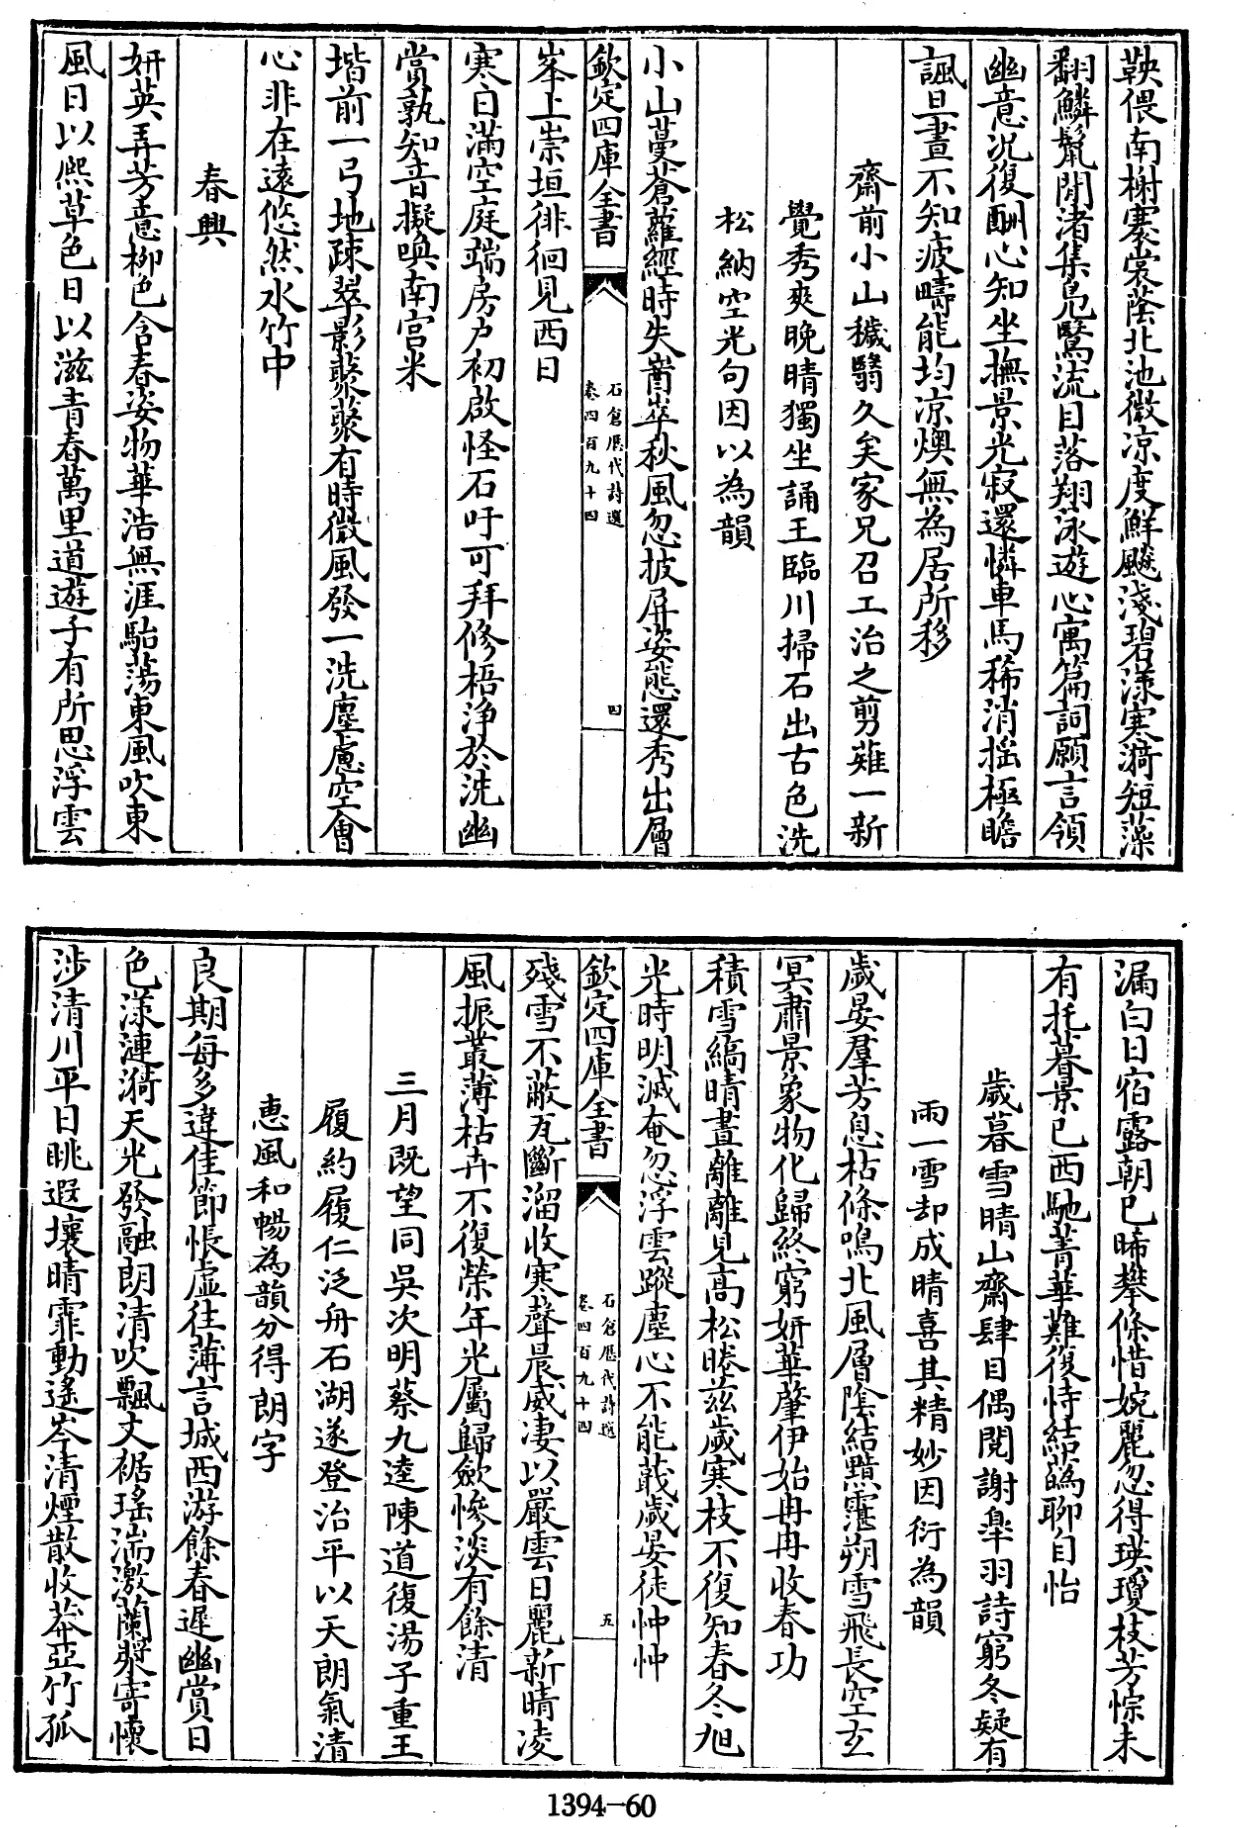 鞅偎南榭褰裳蔭北池微凉度鮮飈淺碧漾寒漪短藻
翻鱗鬛閒渚集鳧鷖流目落翔泳遊心寓篇詞願言領
幽意况復酬心知坐撫景光寂還憐車馬稀消揺極瞻
諷旦晝不知疲疇能均凉燠無為居所移
齋前小山穢翳久矣家兄召工治之剪薙一新
覺秀爽晚晴獨坐誦王臨川掃石出古色洗
松納空光句因以為韻
小山蔓蒼蘿經時失崷崒秋風忽披屏姿態還秀出層
欽定四庫全書
石倉歷代詩選
卷四百九十四
四
峯上崇垣徘徊見西日
寒白滿空庭端房户初啟怪石吁可拜修梧浄於洗幽
賞孰知音擬喚南宮米
堦前一弓地疎翠影䕺䕺有時微風發一洗塵慮空會
心非在遠悠然水竹中
春興
妍英弄芳意柳色含春姿物華浩無涯駘蕩東風吹東
風日以熈草色日以滋青春萬里道遊子有所思浮雲
漏白日宿露朝已晞攀條惜婉麗忽得瑛瓊枝芳悰未
有托暮景已西馳菁華難復恃結髾聊自怡
歲暮雪晴山齋肆目偶閱謝臯羽詩窮冬疑有
雨一雪却成晴喜其精妙因衍為韻
歲晏羣芳息枯條鳴北風層陰結黮霮朔雪飛長空玄
冥肅景象物化歸終窮妍華肇伊始冉冉收春功
積雪縞晴晝離離見高松睠兹歲寒枝不復知春冬旭
光時明滅奄忽浮雲蹤塵心不能蕺歲晏徒忡忡
欽定四庫全書
石倉歷代詩選
卷四百九十四
五
殘雪不蔽瓦斷溜收寒聲晨威凄以嚴雲日麗新晴凌
風振叢薄枯卉不復榮年光屬歸歛慘淡有餘清
三月既望同吳次明蔡九逵陳道復湯子重王
履約履仁泛舟石湖遂登治平以天朗氣清
惠風和暢為韻分得朗字
良期每多違佳節悵虚往薄言城西游餘春遲幽賞日
色漾漣漪天光發融朗清吹飄文裾瑤湍激蘭槳寄懷
涉清川平日眺遐壤晴霏動遙岑清煙散收莽亞竹孤
1394-60